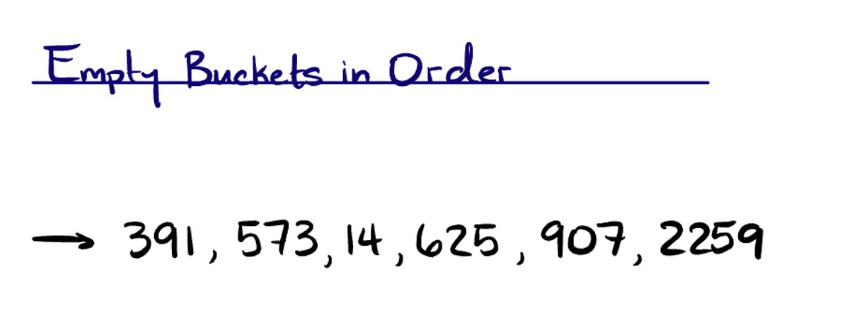 Empty Buckets in Order
→ 391, 573, 14, 625, 907, 2259